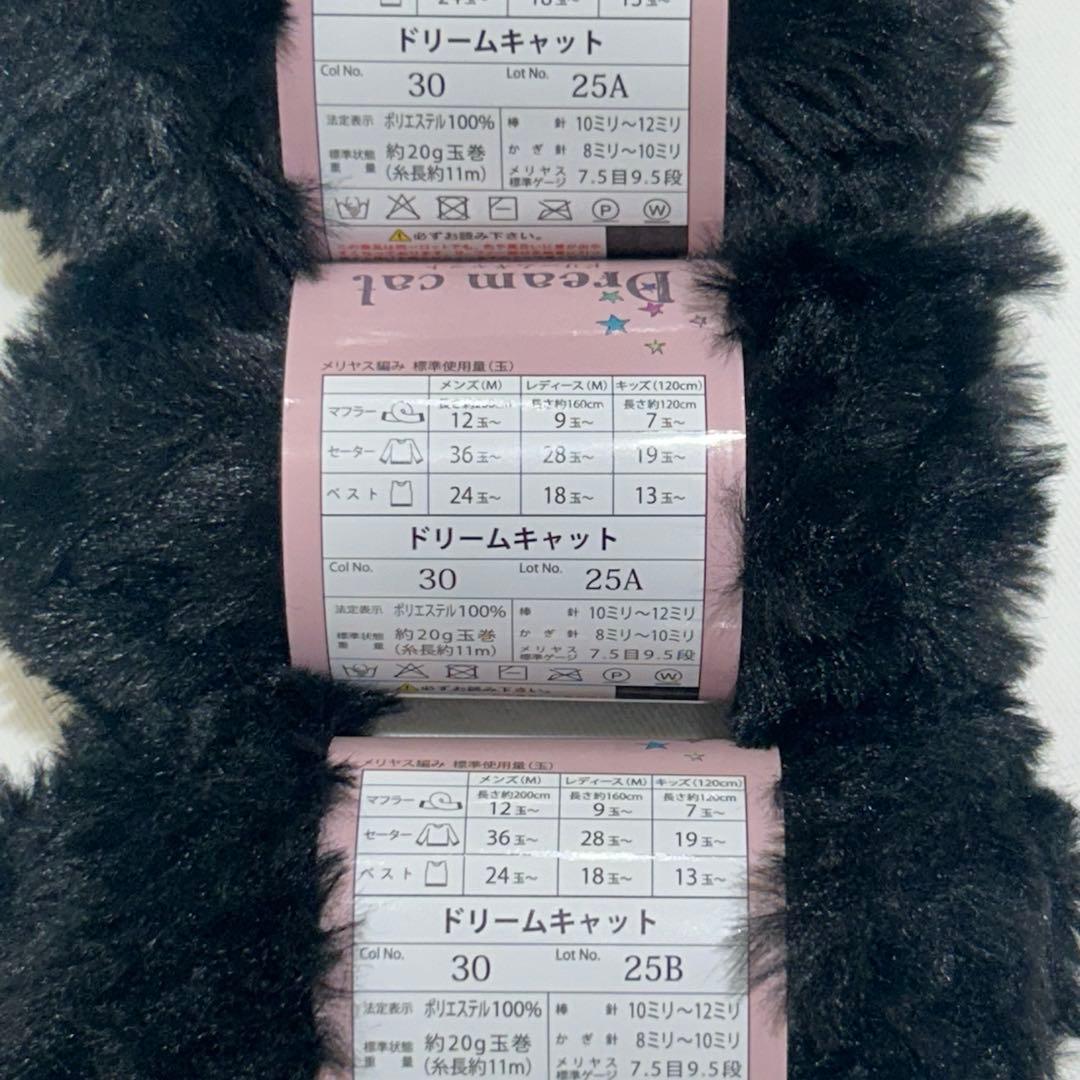 24玉〜 18玉〜 13玉〜
ドリームキャット
Col No. 30 Lot No. 25A
法定表示 ポリエステル100% 棒針 10ミリ〜12ミリ
標準状態重量 約20g玉巻 (糸長約11m) かぎ針 8ミリ〜10ミリ
メリヤス標準ゲージ 7.5目9.5段
P W
必ずお読み下さい。
Dream cat
ドリームキャット
メリヤス編み 標準使用量(玉)
メンズ(M) レディース(M) キッズ(120cm)
マフラー 長さ約200cm 12玉〜 長さ約160cm 9玉〜 長さ約120cm 7玉〜
セーター 36玉〜 28玉〜 19玉〜
ベスト 24玉〜 18玉〜 13玉〜
ドリームキャット
Col No. 30 Lot No. 25A
法定表示 ポリエステル100% 棒針 10ミリ〜12ミリ
標準状態重量 約20g玉巻 (糸長約11m) かぎ針 8ミリ〜10ミリ
メリヤス標準ゲージ 7.5目9.5段
P W
必ずお読み下さい。
メリヤス編み 標準使用量(玉)
メンズ(M) レディース(M) キッズ(120cm)
マフラー 長さ約200cm 12玉〜 長さ約160cm 9玉〜 長さ約120cm 7玉〜
セーター 36玉〜 28玉〜 19玉〜
ベスト 24玉〜 18玉〜 13玉〜
ドリームキャット
Col No. 30 Lot No. 25B
法定表示 ポリエステル100% 棒針 10ミリ〜12ミリ
標準状態重量 約20g玉巻 (糸長約11m) かぎ針 8ミリ〜10ミリ
メリヤス標準ゲージ 7.5目9.5段